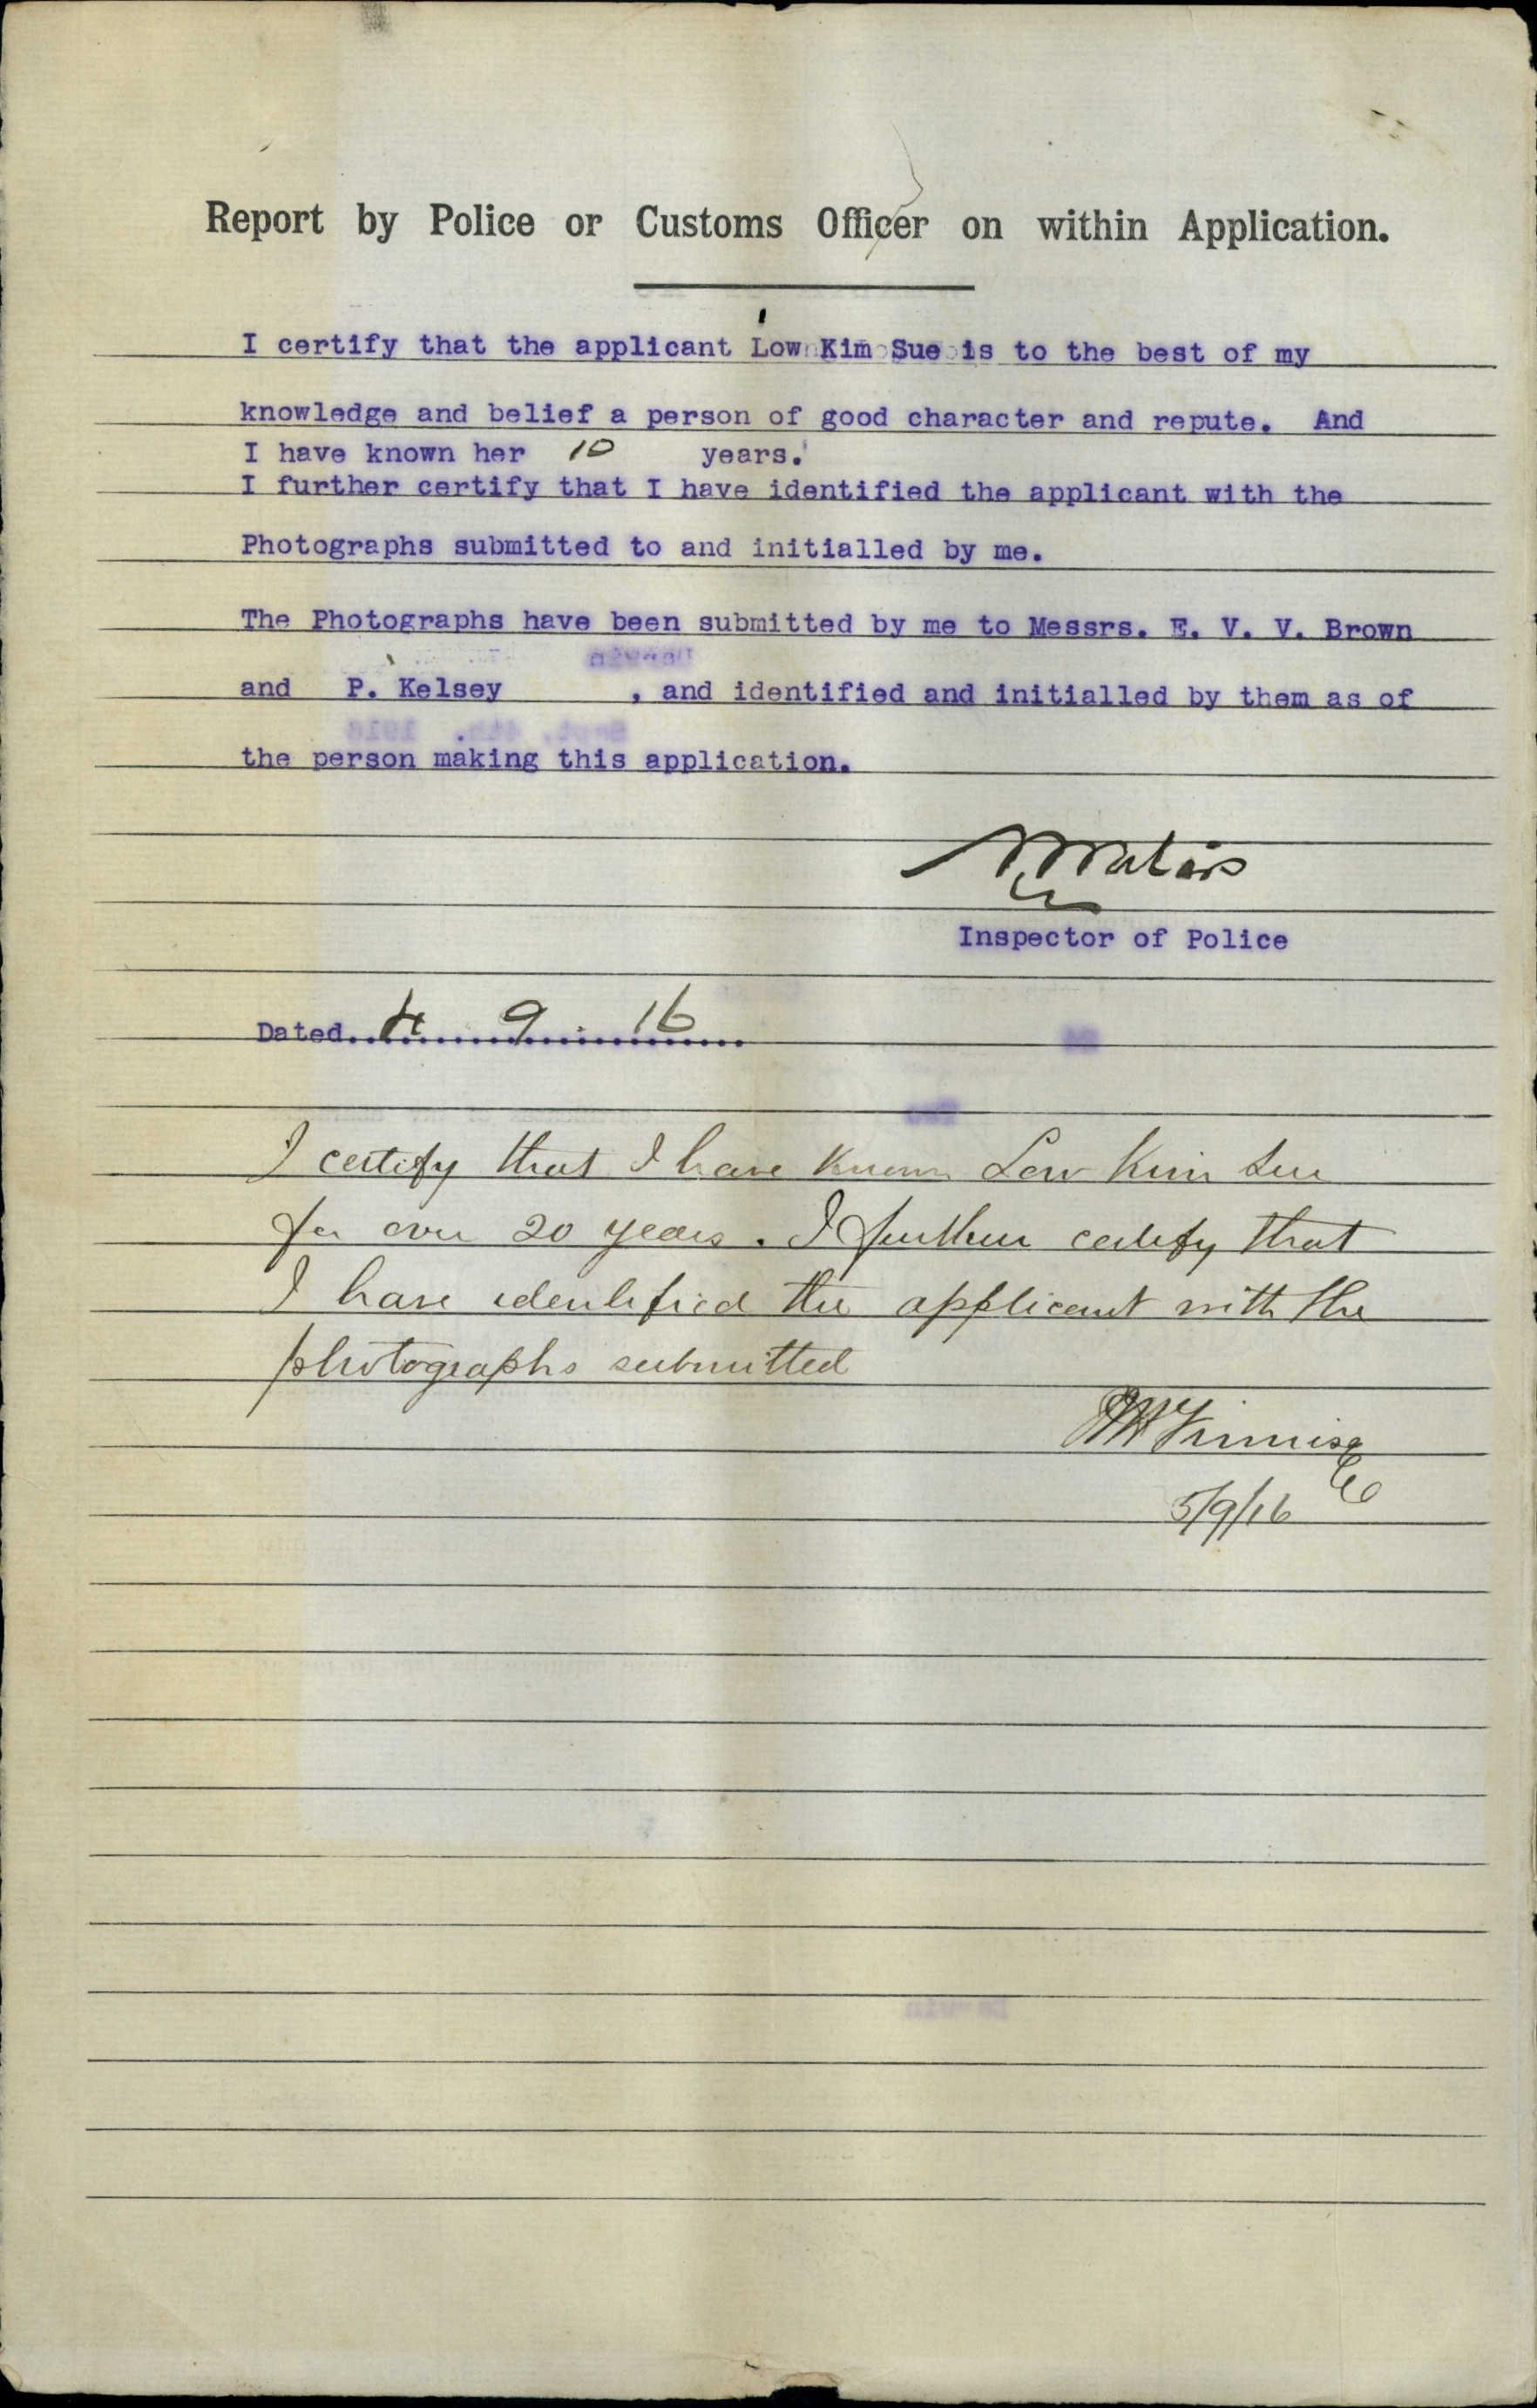 Report by Police or Customs Officer on within Application.
I certify that the applicant Low Kim Sue is to the best of my
knowledge and belief a person of good character and repute. And
I have known her 10 years.
I further certify that I have identified the applicant with the
Photographs submitted to and initialled by me.
The Photographs have been submitted by me to Messrs. E. V. V. Brown
and P. Kelsey , and identified and initialled by them as of
the person making this application.
Inspector of Police
Dated 4 9 16
I certify that I have known Low Kim Sue
for over 20 years. I further certify that
I have identified the applicant with the
photographs submitted
5/9/16